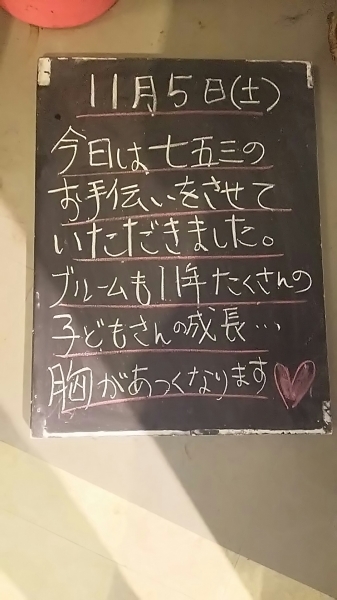 11月5日(土)
今日は七五三の
お手伝いをさせて
いただきました。
ブルームも11年たくさんの
子どもさんの成長…
胸があつくなります